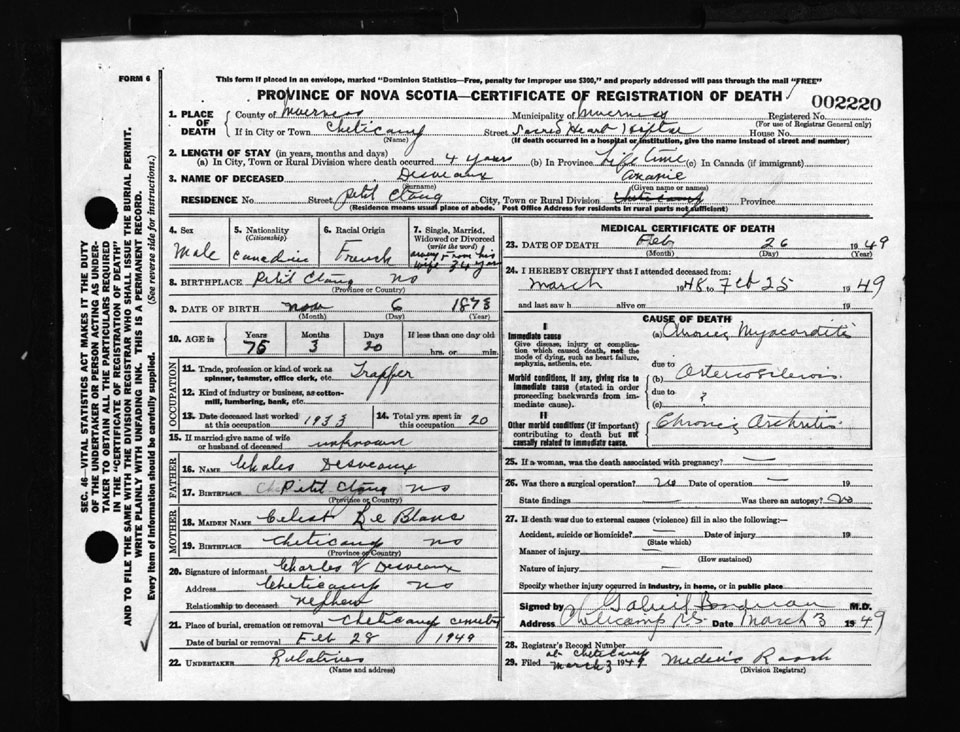 FORM 6
This form if placed in an envelope, marked "Dominion Statistics—Free, penalty for improper use $300," and properly addressed will pass through the mail "FREE"
PROVINCE OF NOVA SCOTIA—CERTIFICATE OF REGISTRATION OF DEATH
002220
1. PLACE OF DEATH County of Inverness Municipality of Inverness Registered No.
(For use of Registrar General only)
If in City or Town Cheticamp Street Sacred Heart House No.
(Name) (If death occurred in a hospital or institution, give the name instead of street and number)
2. LENGTH OF STAY (in years, months and days)
(a) In City, Town or Rural Division where death occurred 4 years (b) In Province Life time (c) In Canada (if immigrant)
3. NAME OF DECEASED Desveaux Ananie
(Surname) (Given name or names)
RESIDENCE No. Street Petit Etang City, Town or Rural Division Cheticamp Province
(Residence means usual place of abode. Post Office Address for residents in rural parts not sufficient)
4. Sex Male
5. Nationality (Citizenship)
6. Racial Origin French
7. Single, Married, Widowed or Divorced (write the word) away from his wife 34 years
8. BIRTHPLACE Petit Etang NS
(Province or Country)
9. DATE OF BIRTH Nov 6 1873
(Month) (Day) (Year)
10. AGE in Years 75 Months 3 Days 20 If less than one day old
hrs. or min.
OCCUPATION
11. Trade, profession or kind of work as spinner, teamster, office clerk, etc. Trapper
12. Kind of industry or business, as cotton-mill, lumbering, bank, etc.
13. Date deceased last worked at this occupation 1933
14. Total yrs. spent in this occupation 20
15. If married give name of wife or husband of deceased unknown
FATHER
16. NAME Chales Desveaux
17. BIRTHPLACE Petit Etang NS
(Province or Country)
MOTHER
18. MAIDEN NAME Celest Le Blanc
19. BIRTHPLACE Cheticamp NS
(Province or Country)
20. Signature of informant Charles V Desveaux
Address Cheticamp NS
Relationship to deceased nephew
21. Place of burial, cremation or removal Cheticamp
Date of burial or removal Feb 28 1949
22. UNDERTAKER Relatives
(Name and address)
MEDICAL CERTIFICATE OF DEATH
23. DATE OF DEATH Feb 26 1949
(Month) (Day) (Year)
24. I HEREBY CERTIFY that I attended deceased from:
March 1948 to Feb 25 1949
and last saw h alive on 19
CAUSE OF DEATH
I
Immediate cause (a) Chronic Myocarditis
Give disease, injury or complication which caused death, not the mode of dying, such as heart failure, asphyxia, asthenia, etc.
due to
Morbid conditions, if any, giving rise to immediate cause (stated in order proceeding backwards from immediate cause). (b) Arteriosclerosis
due to
(c) ?
II
Other morbid conditions (if important) contributing to death but not causally related to immediate cause. Chronic Arthritis
25. If a woman, was the death associated with pregnancy? —
26. Was there a surgical operation? no Date of operation —
State findings — Was there an autopsy? No
27. If death was due to external causes (violence) fill in also the following:—
Accident, suicide or homicide? — Date of injury 19
(State which)
Manner of injury —
(How sustained)
Nature of injury —
Specify whether injury occurred in industry, in home, or in public place
Signed by Gabriel Boudreau M.D.
Address Cheticamp NS Date March 3 1949
28. Registrar's Record Number
at Cheticamp
29. Filed March 3 1949
(Division Registrar)
SEC. 46—VITAL STATISTICS ACT MAKES IT THE DUTY
OF THE UNDERTAKER OR PERSON ACTING AS UNDERTAKER TO OBTAIN ALL THE PARTICULARS REQUIRED
IN THE "CERTIFICATE OF REGISTRATION OF DEATH"
AND TO FILE THE SAME WITH THE DIVISION REGISTRAR WHO SHALL ISSUE THE BURIAL PERMIT.
WRITE PLAINLY WITH UNFADING INK. THIS IS A PERMANENT RECORD.
Every item of information should be carefully supplied. (See reverse side for instructions.)